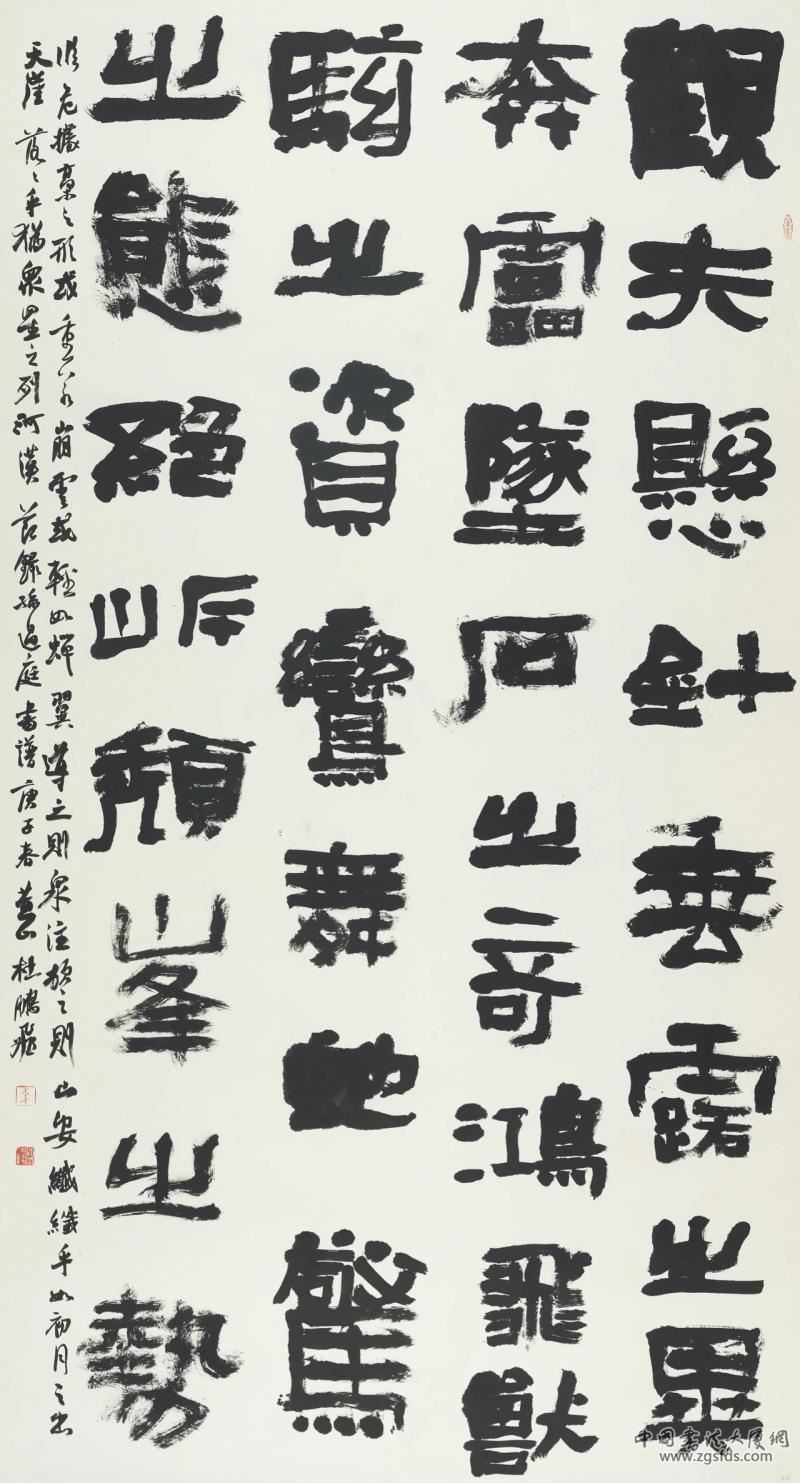 觀夫懸針垂露之異
奔雷墜石之奇鴻飛獸
駭之資鸞舞蛇驚
之態絕岸頹峯之勢
臨危據槀之形或重若崩雲或輕如蟬翼導之則泉注頓之則山安纖纖乎如初月之出
天崖落落乎猶眾星之列河漢 節錄孫過庭書譜庚子春 杜鵬飛
中國書法大廈網
www.zgsfds.com